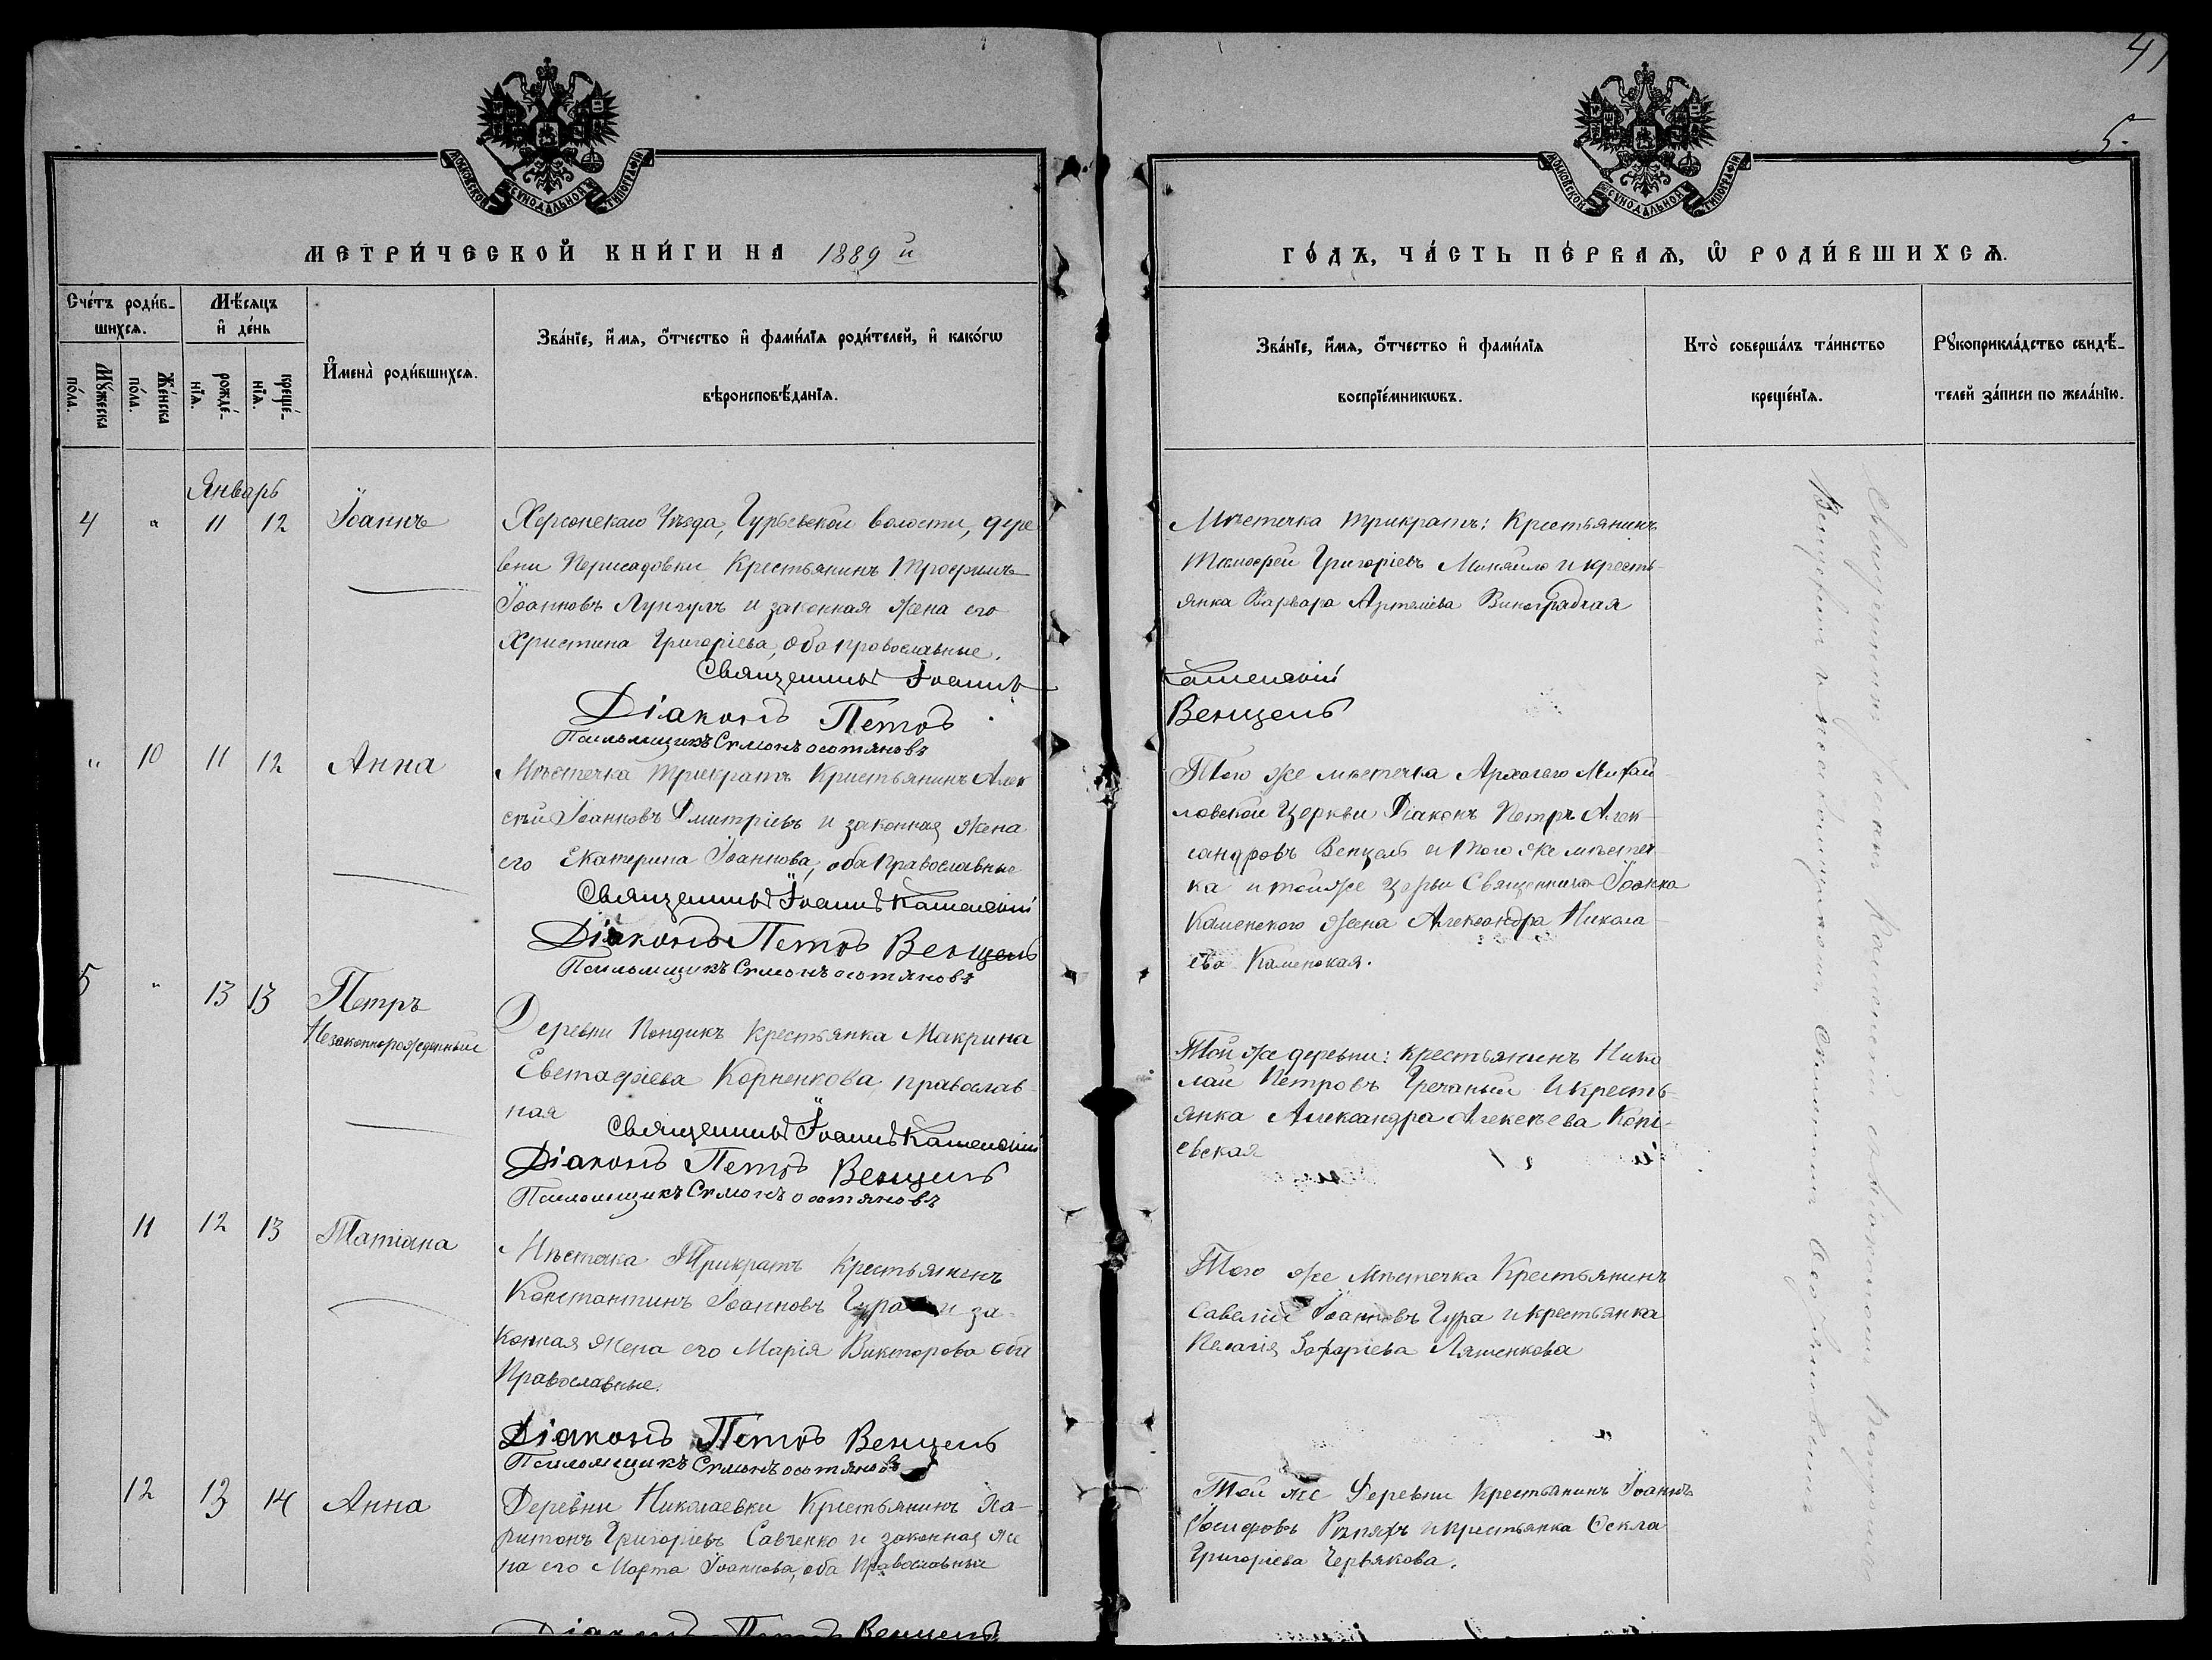 4
5.
МОСКОВСКОЙ СѴНОДАЛЬНОЙ ТИПОГРАФІИ
МЕТРИ́ЧЕСКОЙ КНИ́ГИ НА 1889 й
Сче́тъ роди́в-
шихсѧ.
Мꙋ́жеска по́ла.
Же́нска по́ла.
Мѣ́сѧцъ
и҆ де́нь
рожде́-нїѧ.
креще́-нїѧ.
И҆мена̀ роди́вшихсѧ.
Зва́нїе, и҆́мѧ, ѻ҆́тчество и҆ фами́лїѧ роди́телей, и҆ како́гѡ
вѣроисповѣ́данїѧ.
Январь
4 " 11 12 Іоаннъ
Херсонскаго Уѣзда, Гурьевской волости, дере
вни Перисадовки Крестьянинъ Трофимъ
Іоанновъ Лунгулъ и законная жена его
Христина Григоріева, оба православные.
Священникъ Іоаннъ
Діаконъ Петръ
Псаломщикъ Симонъ
" 10 11 12 Анна
Мѣстечка Трикратъ Крестьянинъ Алек
сѣй Іоанновъ Дмитріевъ и законная жена
его Екатерина Іоаннова, оба православные
Священникъ Іоаннъ Каменскій
Діаконъ Петръ Венцель
Псаломщикъ Симонъ
5 " 13 13 Петръ
Незаконнорожденный
Деревни Кондикъ Крестьянка Макрина
Евстафіева Корненкова, православ-
ная
Священникъ Іоаннъ Каменскій
Діаконъ Петръ Венцель
Псаломщикъ Симонъ
11 12 13 Татіана
Мѣстечка Трикратъ Крестьянинъ
Константинъ Іоанновъ Гура и за-
конная жена его Марія Викторова оба
Православные.
Діаконъ Петръ Венцель
Псаломщикъ Симонъ
12 13 14 Анна
Деревни Николаевки Крестьянинъ Ха-
ритонъ Григоріевъ Савченко и законная же
на его Марта Іоаннова, оба Православные
Діаконъ Петръ Венцель
МОСКОВСКОЙ СѴНОДАЛЬНОЙ ТИПОГРАФІИ
ГО́ДЪ, ЧА́СТЬ ПЕ́РВАѦ, Ѡ҆ РОДИ́ВШИХСѦ.
Зва́нїе, и҆́мѧ, ѻ҆́тчество и҆ фами́лїѧ
воспрїе́мникѡвъ.
Кто̀ соверша́лъ та́инство
креще́нїѧ.
Рꙋкоприкла́дство свидѣ́-
телей за́писи по жела́нїю.
Мѣстечка Трикратъ: Крестьянинъ
Тимофей Григоріевъ Манайло и кресть-
янка Варвара Артеміева Виноградная
Каменскій
Венцель
Того же мѣстечка Архангело Михай
ловской Церкви Діаконъ Петръ Алек
сандровъ Венцель и того же мѣстеч
ка и тойже Церкви Священника Іоанна
Каменского жена Александра Никола-
ева Каменская.
Той же деревни: Крестьянинъ Нико
лай Петровъ Гречаный и кресть-
янка Александра Алексѣева
евская
Того же Мѣстечка Крестьянинъ
Савелій Іоанновъ Гура и крестьянка
Пелагія Ляшенкова
Той же Деревни Крестьянинъ Іоаннъ
Іосифовъ и крестьянка Ѳекла
Григоріева Червякова.
Священникъ Іоаннъ Каменскій съ Діакономъ Петромъ
Венцелем и Псаломщикомъ